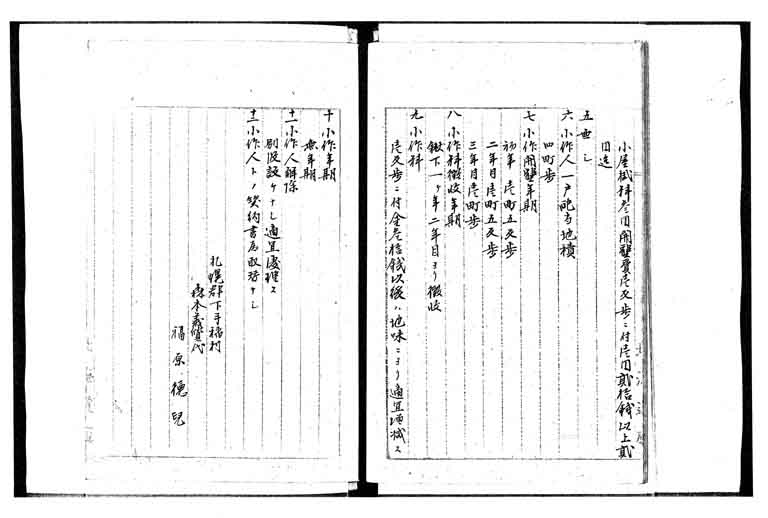 小屋掛料参円開墾費壱反歩ニ付壱円貳拾銭以上貳
円迄
五 無シ
六 小作人一戸配当地積
四町歩
七 小作開墾年期
初年 壱町五反歩
二年目壱町五反歩
三年目壱町歩
八 小作料徴收年期
鍬下一ヶ年二年目ヨリ徴收
九 小作料
壱反歩ニ付金参拾銭以後ハ地味ニヨリ適宜増減ス
十 小作年期
無年期
十一 小作人解除
別段設ケナシ適宜処理ス
十二 小作人トノ契約書為取替ナシ
札幌郡下手稲村
森本義質代
福原徳児